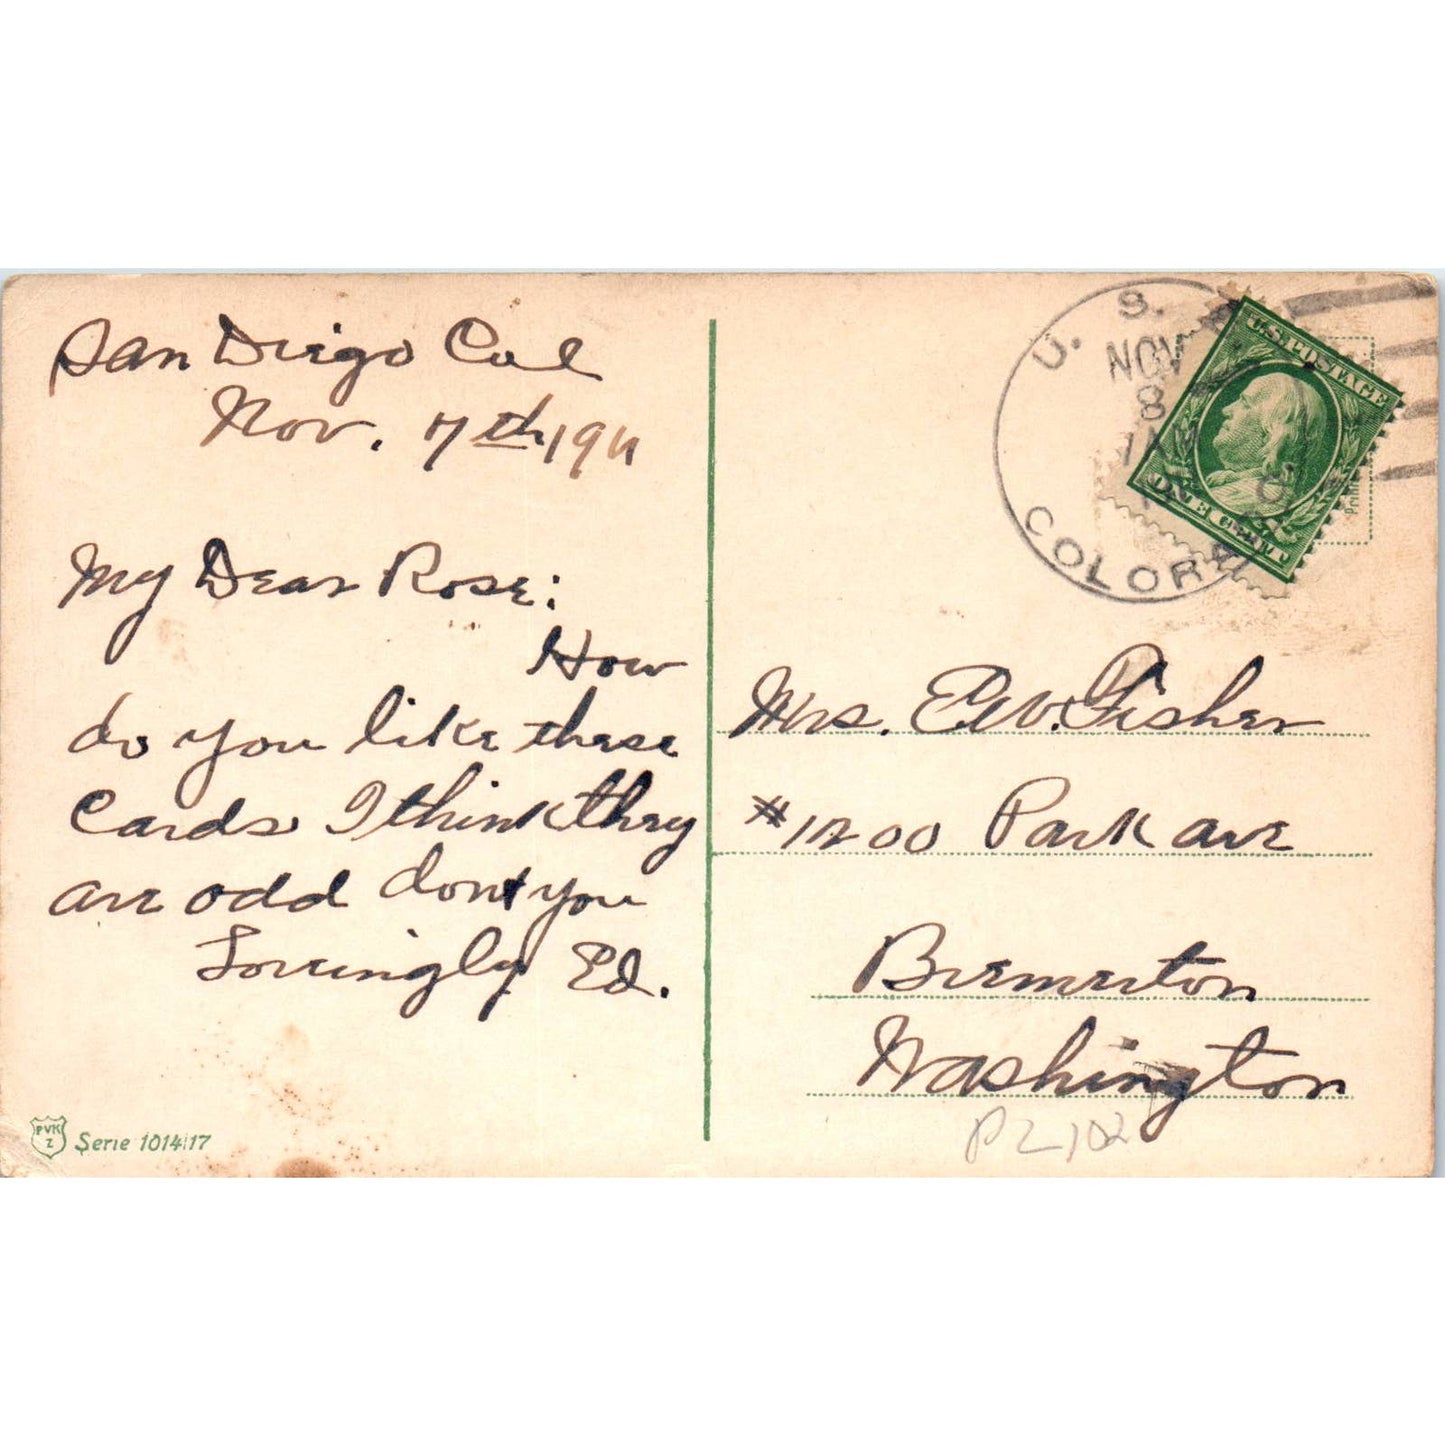 San Diego Cal
Nov. 7th, 1911
My Dear Rose:
How
do you like these
Cards I think they
are odd dont you
Lovingly Ed.
PVK
Z
Serie 1014/17
U. S.
NOV
8
COLOR
U.S. POSTAGE
ONE CENT
Mrs. E.W. Fisher
#1200 Park ave
Bremerton
Washington
P2102